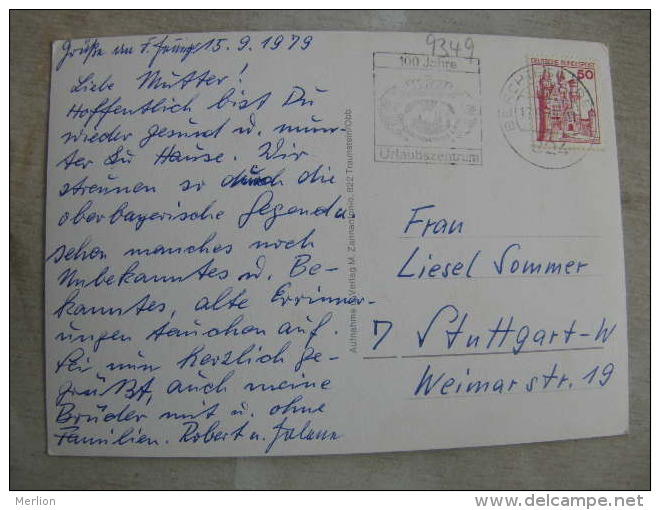 Grüße an 15.9.1979
Liebe Mutter!
Hoffentlich bist Du
wieder gesund u. mun-
ter zu Hause. Wir
streunen so durch die
oberbayerische Gegend u.
sehen manches noch
Unbekanntes u. Be-
kanntes, alte Errinner-
ungen tauchen auf.
Sei nun herzlich ge-
grüßt, auch meine
Brüder mit u. ohne
Familien. Robert u.
9349
100 Jahre
Urlaubszentrum
DEUTSCHE BUNDESPOST
50
Verlag M. 822 Traunstein/Obb.
Frau
Liesel Sommer
7 Stuttgart-W
Weimarstr. 19
Merlion
www.delcampe.net